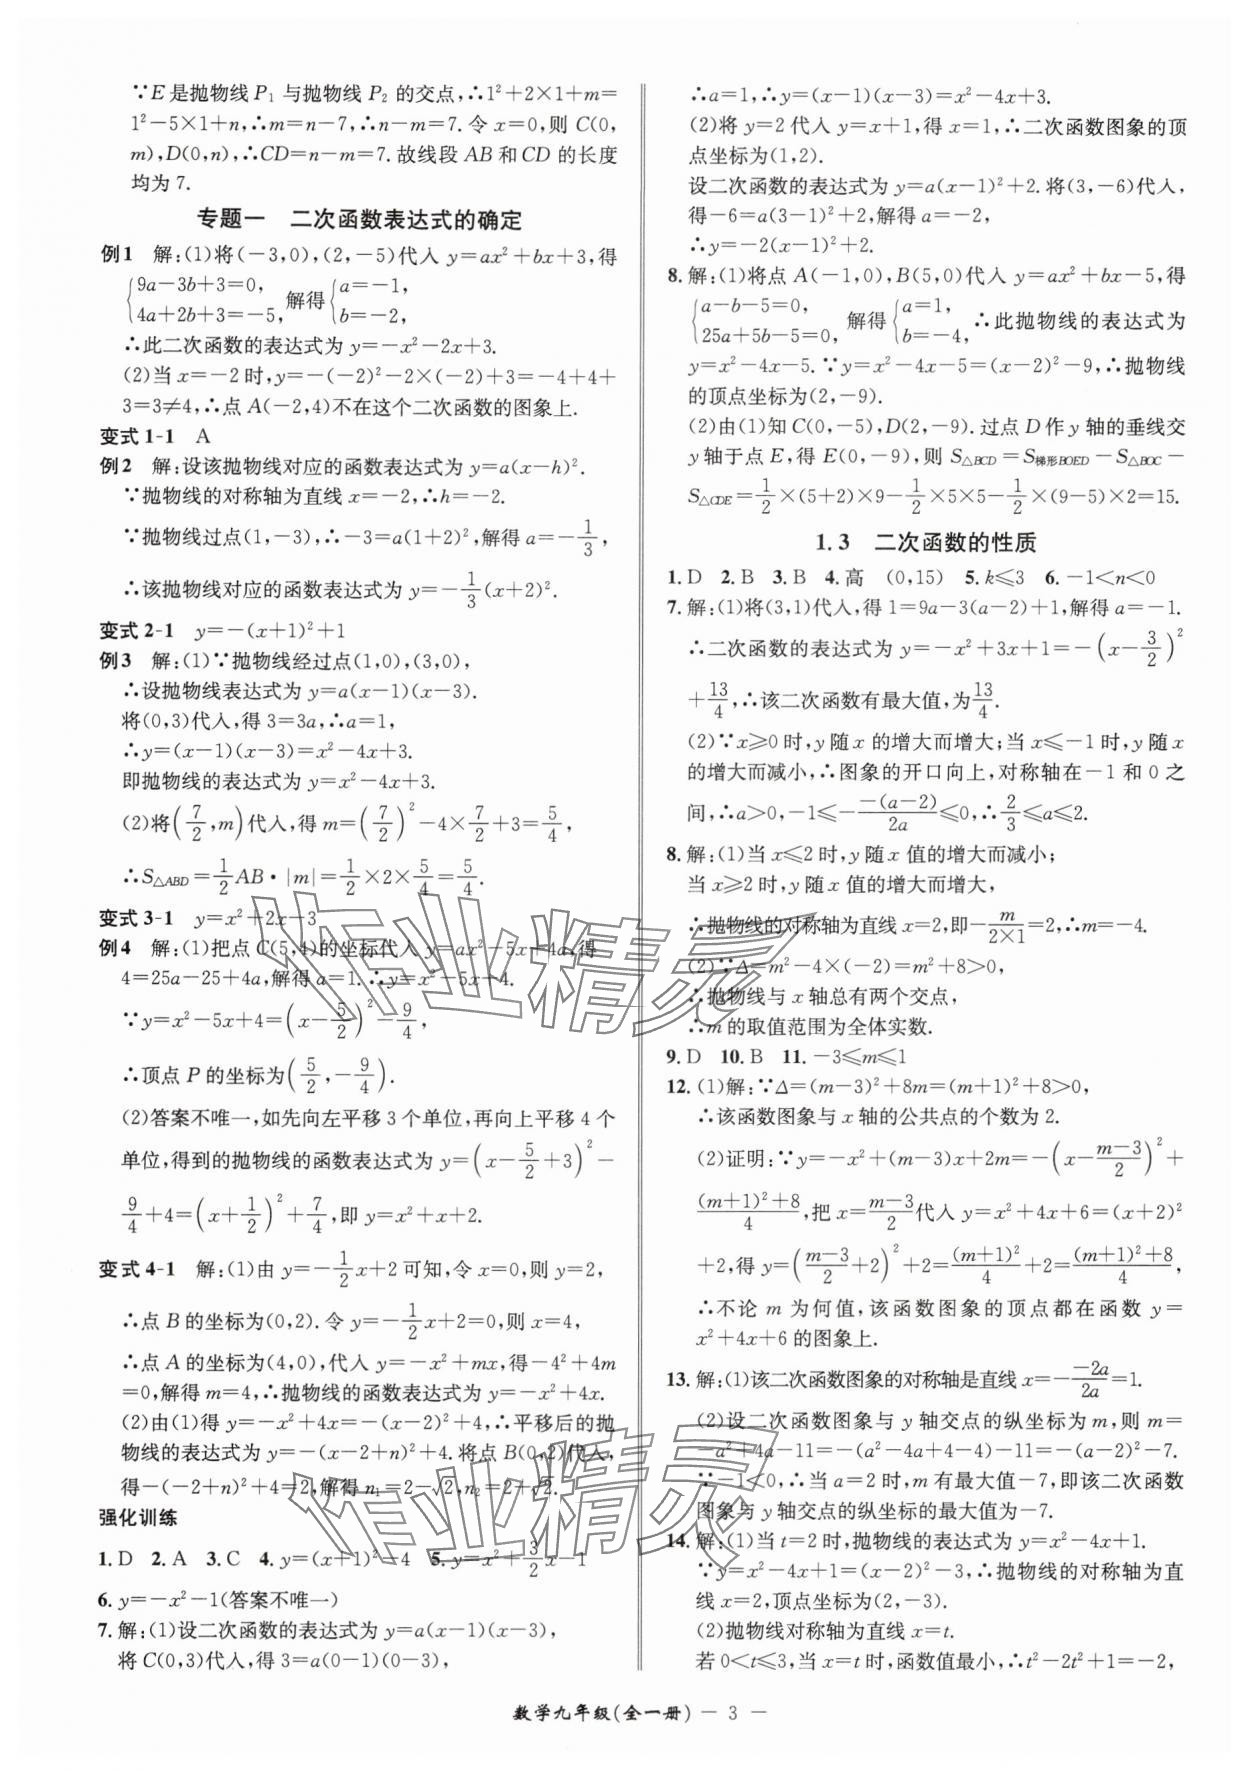 ∵E是抛物线 P₁ 与抛物线 P₂ 的交点,∴1²+2×1+m=
1²-5×1+n,∴m=n-7,∴n-m=7.令 x=0,则 C(0,
m),D(0,n),∴CD=n-m=7.故线段 AB 和 CD 的长度
均为 7.
专题一 二次函数表达式的确定
例1 解:(1)将(-3,0),(2,-5)代入 y=ax²+bx+3,得
{9a-3b+3=0, 4a+2b+3=-5, 解得{a=-1, b=-2,
∴此二次函数的表达式为 y=-x²-2x+3.
(2)当 x=-2 时,y=-(-2)²-2×(-2)+3=-4+4+
3=3≠4,∴点 A(-2,4)不在这个二次函数的图象上.
变式 1-1 A
例2 解:设该抛物线对应的函数表达式为 y=a(x-h)².
∵抛物线的对称轴为直线 x=-2,∴h=-2.
∵抛物线过点(1,-3),∴-3=a(1+2)²,解得 a=-1/3,
∴该抛物线对应的函数表达式为 y=-1/3(x+2)².
变式 2-1 y=-(x+1)²+1
例3 解:(1)∵抛物线经过点(1,0),(3,0),
∴设抛物线表达式为 y=a(x-1)(x-3).
将(0,3)代入,得 3=3a,∴a=1,
∴y=(x-1)(x-3)=x²-4x+3.
即抛物线的表达式为 y=x²-4x+3.
(2)将(7/2,m)代入,得 m=(7/2)²-4×7/2+3=5/4,
∴S△ABD=1/2AB·|m|=1/2×2×5/4=5/4.
变式 3-1 y=x²+2x-3
例4 解:(1)把点 C(5,4)的坐标代入 y=ax²-5x+4a,得
4=25a-25+4a,解得 a=1.∴y=x²-5x+4.
∵y=x²-5x+4=(x-5/2)²-9/4,
∴顶点 P 的坐标为(5/2,-9/4).
(2)答案不唯一,如先向左平移 3 个单位,再向上平移 4 个
单位,得到的抛物线的函数表达式为 y=(x-5/2+3)²-
9/4+4=(x+1/2)²+7/4,即 y=x²+x+2.
变式 4-1 解:(1)由 y=-1/2x+2 可知,令 x=0,则 y=2,
∴点 B 的坐标为(0,2).令 y=-1/2x+2=0,则 x=4,
∴点 A 的坐标为(4,0),代入 y=-x²+mx,得-4²+4m
=0,解得 m=4,∴抛物线的函数表达式为 y=-x²+4x.
(2)由(1)得 y=-x²+4x=-(x-2)²+4,∴平移后的抛
物线的表达式为 y=-(x-2+n)²+4.将点 B(0,2)代入,
得-(-2+n)²+4=2,解得 n₁=2-√2,n₂=2+√2.
强化训练
1.D 2.A 3.C 4.y=(x+1)²-4 5.y=x²+3/2x-1
6.y=-x²-1(答案不唯一)
7.解:(1)设二次函数的表达式为 y=a(x-1)(x-3),
将 C(0,3)代入,得 3=a(0-1)(0-3),
∴a=1,∴y=(x-1)(x-3)=x²-4x+3.
(2)将 y=2 代入 y=x+1,得 x=1,∴二次函数图象的顶
点坐标为(1,2).
设二次函数的表达式为 y=a(x-1)²+2.将(3,-6)代入,
得-6=a(3-1)²+2,解得 a=-2,
∴y=-2(x-1)²+2.
8.解:(1)将点 A(-1,0),B(5,0)代入 y=ax²+bx-5,得
{a-b-5=0, 25a+5b-5=0, 解得{a=1, b=-4, ∴此抛物线的表达式为
y=x²-4x-5.∵y=x²-4x-5=(x-2)²-9,∴抛物线
的顶点坐标为(2,-9).
(2)由(1)知 C(0,-5),D(2,-9).过点 D 作 y 轴的垂线交
y 轴于点 E,得 E(0,-9),则 S△BCD=S梯形BOED-S△BOC-
S△CDE=1/2×(5+2)×9-1/2×5×5-1/2×(9-5)×2=15.
1.3 二次函数的性质
1.D 2.B 3.B 4.高 (0,15) 5.k≤3 6.-1<n<0
7.解:(1)将(3,1)代入,得 1=9a-3(a-2)+1,解得 a=-1.
∴二次函数的表达式为 y=-x²+3x+1=-(x-3/2)²
+13/4,∴该二次函数有最大值,为13/4.
(2)∵x≥0 时,y 随 x 的增大而增大;当 x≤-1 时,y 随 x
的增大而减小,∴图象的开口向上,对称轴在-1 和 0 之
间,∴a>0,-1≤-(-(a-2))/(2a)≤0,∴2/3≤a≤2.
8.解:(1)当 x≤2 时,y 随 x 值的增大而减小;
当 x≥2 时,y 随 x 值的增大而增大,
∴抛物线的对称轴为直线 x=2,即-m/(2×1)=2,∴m=-4.
(2)∵Δ=m²-4×(-2)=m²+8>0,
∴抛物线与 x 轴总有两个交点,
∴m 的取值范围为全体实数.
9.D 10.B 11.-3≤m≤1
12.(1)解:∵Δ=(m-3)²+8m=(m+1)²+8>0,
∴该函数图象与 x 轴的公共点的个数为 2.
(2)证明:∵y=-x²+(m-3)x+2m=-(x-(m-3)/2)²+
((m+1)²+8)/4,把 x=(m-3)/2代入 y=x²+4x+6=(x+2)²
+2,得 y=((m-3)/2+2)²+2=(m+1)²/4+2=((m+1)²+8)/4,
∴不论 m 为何值,该函数图象的顶点都在函数 y=
x²+4x+6 的图象上.
13.解:(1)该二次函数图象的对称轴是直线 x=-(-2a)/(2a)=1.
(2)设二次函数图象与 y 轴交点的纵坐标为 m,则 m=
-a²+4a-11=-(a²-4a+4-4)-11=-(a-2)²-7.
∵-1<0,∴当 a=2 时,m 有最大值-7,即该二次函数
图象与 y 轴交点的纵坐标的最大值为-7.
14.解:(1)当 t=2 时,抛物线的表达式为 y=x²-4x+1.
∵y=x²-4x+1=(x-2)²-3,∴抛物线的对称轴为直
线 x=2,顶点坐标为(2,-3).
(2)抛物线对称轴为直线 x=t.
若 0<t≤3,当 x=t 时,函数值最小,∴t²-2t²+1=-2,
数学九年级(全一册) — 3 —
作业精灵
作业精灵